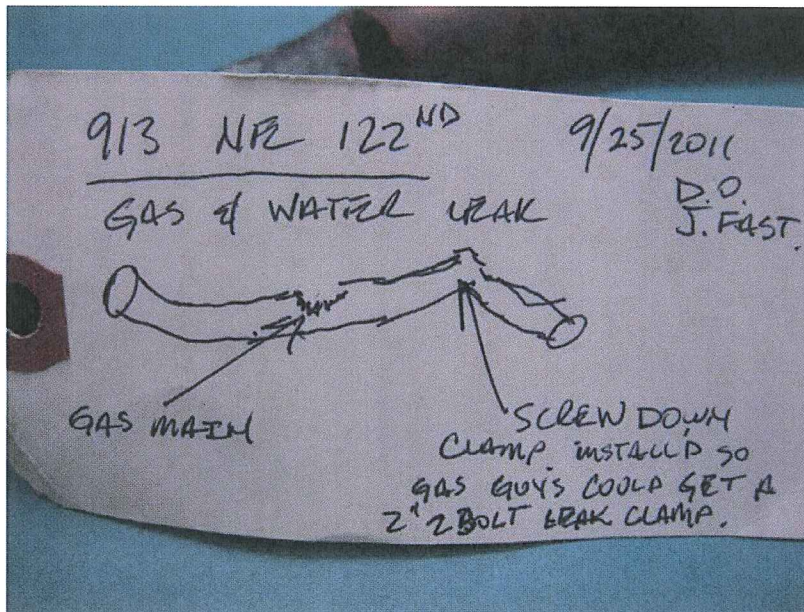 913 NE 122ND
9/25/2011
D.O.
J. FAST.
GAS & WATER LEAK
GAS MAIN
SCREW DOWN
CLAMP INSTALL'D SO
GAS GUYS COULD GET A
2" 2 BOLT LEAK CLAMP.